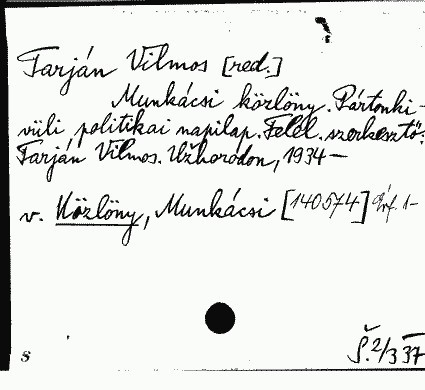 Tarján Vilmos [red.]
Munkácsi közlöny. Pártonki-
vüli politikai napilap. Felel. szerkesztő:
Tarján Vilmos. Užhorodon, 1934—
v. Közlöny, Munkácsi [140574]
Š. 2/3 37
s